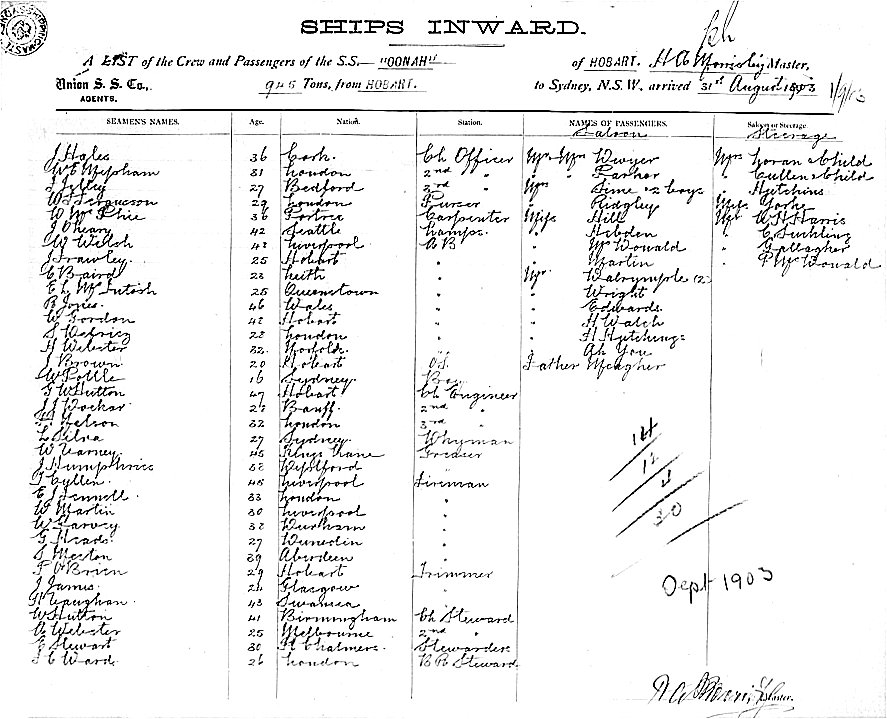 SHIPS INWARD.
A LIST of the Crew and Passengers of the S.S. "OONAH" of HOBART. Master,
Union S. S. Co., 945 Tons, from HOBART. to Sydney, N.S.W., arrived 31st August 1903 1/9/03
AGENTS.
SEAMEN'S NAMES. Age. Nation. Station. NAMES OF PASSENGERS. Saloon or Steerage.
Saloon Steerage
J Hales 36 Cork. Ch Officer Mr Mrs Dwyer Mrs Horan & Child
31 London 2nd " " " Parker " Cullen & Child
27 Bedford 3rd " Mrs Sime & 2 boys " Hutchins
W Fergusson 29 London Purser " Ridgley Miss Yorke
W McPhie 36 Portree Carpenter Miss Hill Mr W H Harris
J OKeary 42 Seattle Lamps. " Hebden " C Suckling
W Welsh 42 Liverpool A B " McDonald " Gallagher
J Frawley 25 Hobart " " Martin " P McDonald
C Baird 23 Leith " Mr Dalrymple (2)
E L McIntosh 25 Queenstown " " Wright
B Jones. 46 Wales " " Edwards.
W Gordon 42 Hobart " " H Walch
22 London " " H Hutchings
H Webster 32. Norfolk. " " Ah You
J Brown 20 Hobart O.S. Father Meagher
W Pottle 16 Sydney. Boy
T W Hutton 47 Hobart Ch Engineer
22 Banff. 2nd "
Nelson 32 London 3rd "
L Silva 27 Sydney.
W Kearney. 45 Greaser
J Humphries 38 Wexford "
T Cullen. 45 Liverpool Fireman
E J Fennell. 33 London "
W Martin 30 Liverpool "
W Garvey 32 Durham "
G Heads. 27 Dunedin "
39 Aberdeen "
P O'Brien 29 Hobart Trimmer
J James. 24 Glasgow "
H Vaughan. 43 Swansea "
W Hutton 41 Birmingham Ch Steward
A Webster 25 Melbourne 2nd "
E Stewart 30 Pt Chalmers. Stewardess
J C Ward. 26 London B R Steward
14
12
4
30
Sept 1903
Master.